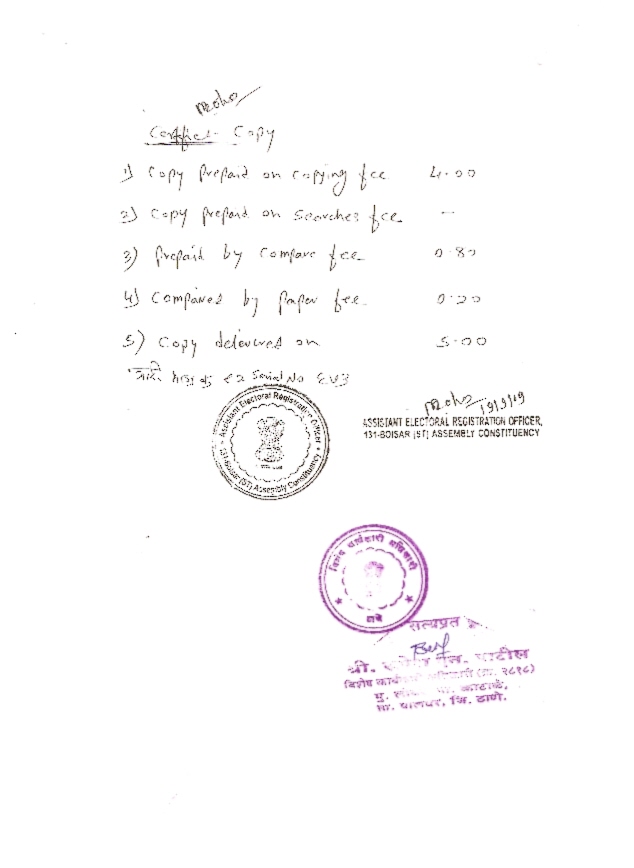 Copy
1) Copy Prepaid on Copying fee 4.00
2) Copy prepaid on Searches fee —
3) Prepaid by Compare fee 0.80
4) Compares by paper fee 0.20
5) Copy delivered on 5.00
Serial No
Assistant Electoral Registration Officer
131-BOISAR (ST) Assembly Constituency
19/9/19
ASSISTANT ELECTORAL REGISTRATION OFFICER,
131-BOISAR (ST) ASSEMBLY CONSTITUENCY
विशेष कार्यकारी अधिकारी
ठाणे
सत्यप्रत
श्री. एन. पाटील
विशेष कार्यकारी अधिकारी (क्र. २८१८)
मु. पो. काटाळे,
ता. पालघर, जि. ठाणे.